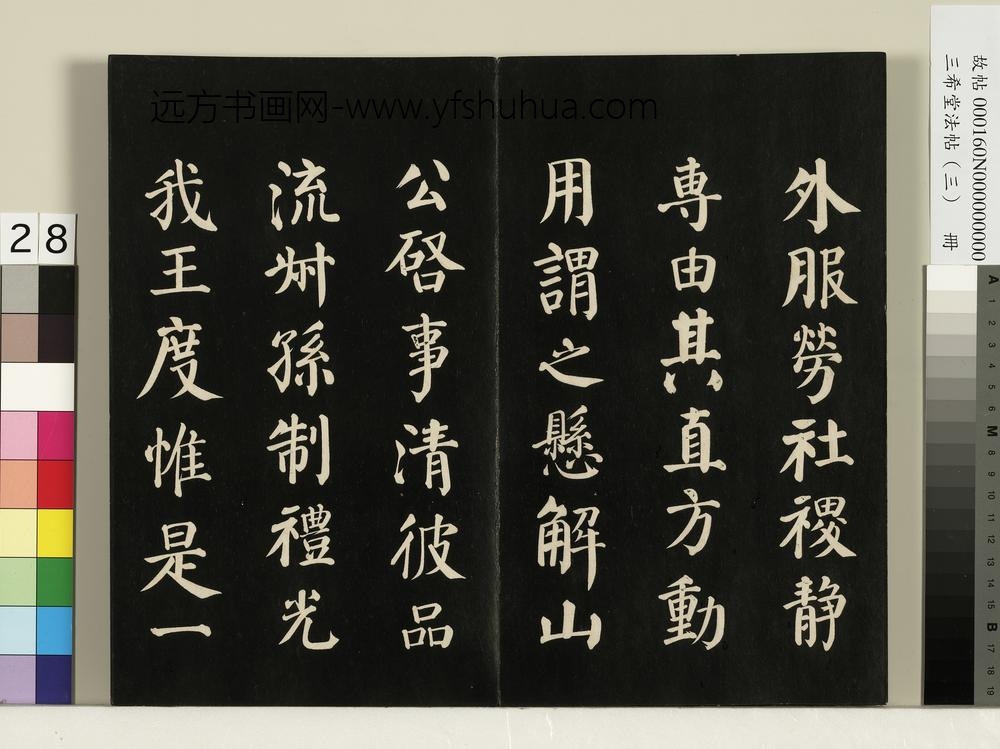 远方书画网-www.yfshuhua.com
外服勞社禝静
専由其直方動
用謂之懸解山
公啓事清彼品
流叔孫制禮光
我王度惟是一
故帖 000160N000000000
三希堂法帖（三） 冊
28
A 1 2 3 4 5 6 M 8 9 10 11 12 13 14 15 B 17 18 19